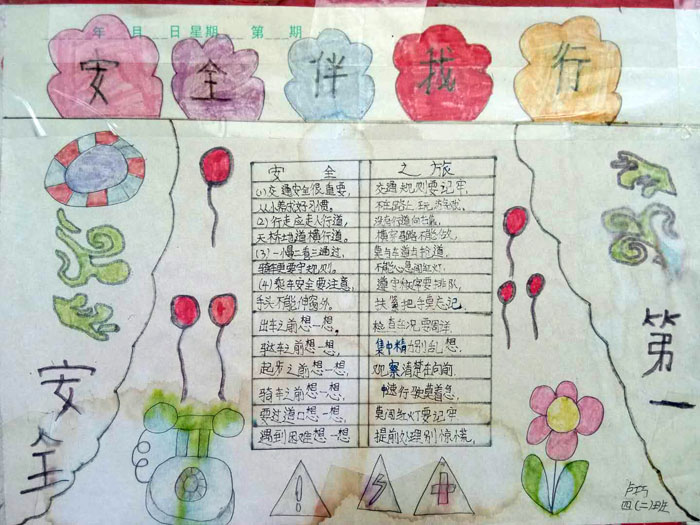 年 月 日 星期 第 期
安全伴我行
安全
第一
安全之旅
(1)交通安全很重要, 交通规则要记牢,
从小养成好习惯。 不在路上玩游戏。
(2)行走应走人行道, 没有行道向右靠,
天桥地道横行道。 横穿马路不能
(3)一慢二看三通过, 莫与车道与抢道。
骑车更要守规则。 不能心急闯红灯。
(4)乘车安全要注意, 遵守秩序要排队,
手头不能伸窗外。 扶紧把手要忘记。
出车之前想一想, 检查车况要周详。
驶车之前想一想, 集中精力别乱想.
起步之前想一想, 观察清楚在向前.
骑车之前想一想, 慢行驶莫着急。
要过道口想一想, 莫闯红灯要记牢
遇到困难想一想. 提前处理别惊慌,
四(二)班